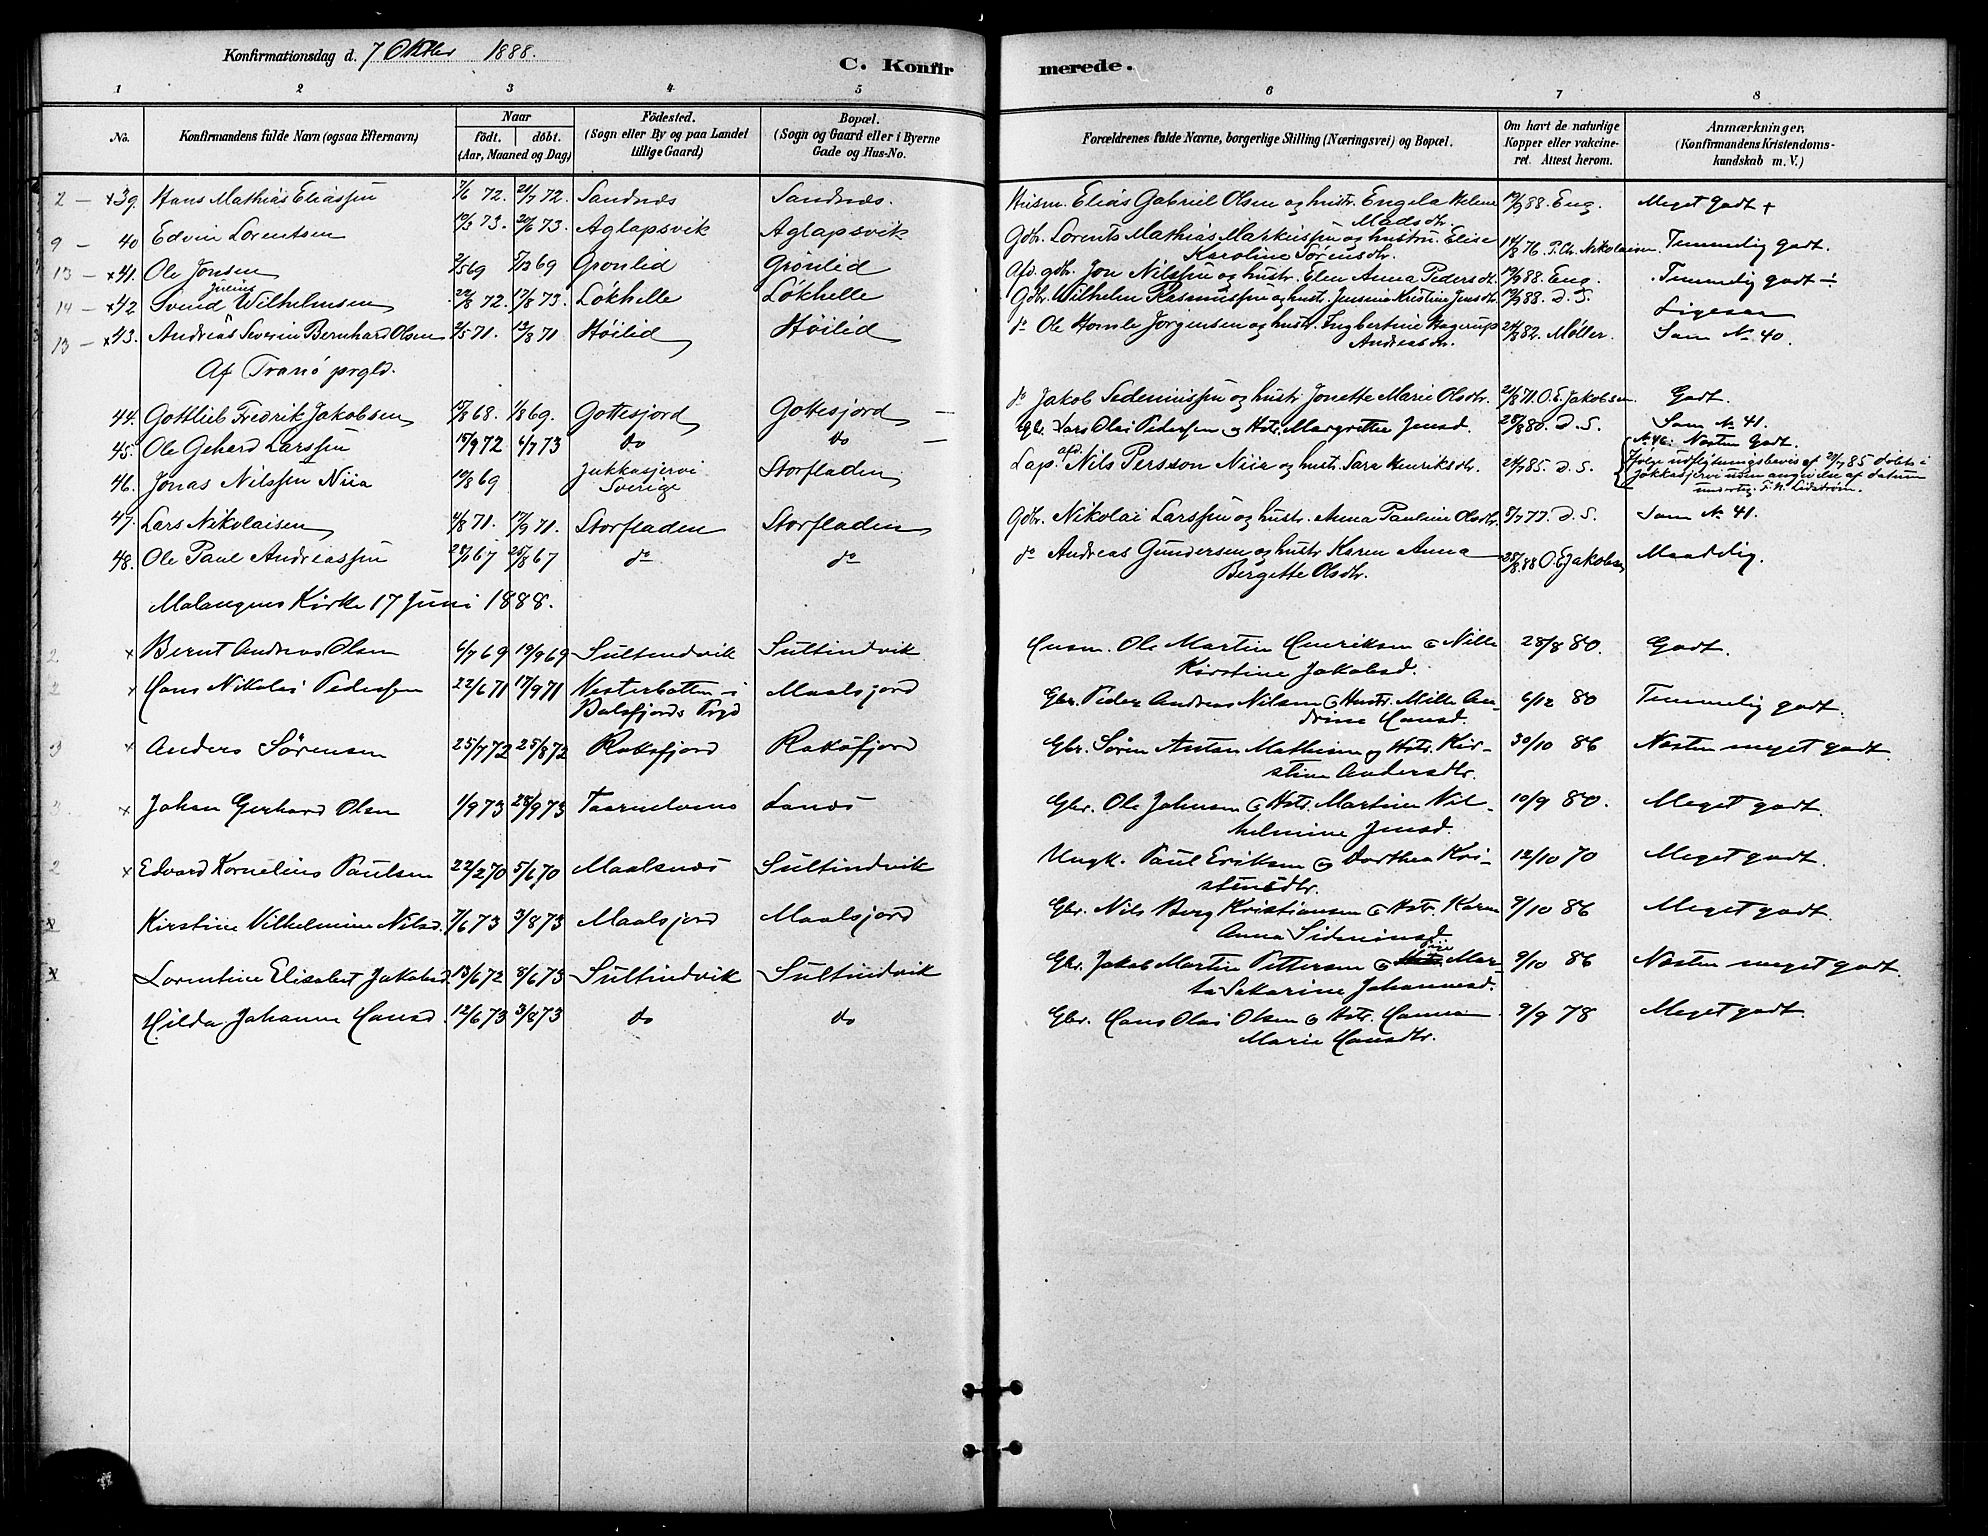 Konfirmationsdag d. 7 Oktbr 1888.
C. Konfirmerede.
1 2 3 4 5 6 7 8
No. Konfirmandens fulde Navn (ogsaa Efternavn) Naar födt. döbt. (Aar, Maaned og Dag) Födested. (Sogn eller By og paa Landet tillige Gaard) Bopæl. (Sogn og Gaard eller i Byerne Gade og Hus-No. Forældrenes fulde Navne, borgerlige Stilling (Næringsvei) og Bopæl. Om havt de naturlige Kopper eller vakcineret. Attest herom. Anmærkninger, (Konfirmandens Kristendomskundskab m. V.)
2 – x39. Hans Mathias Eliassen 7/6 72. 21/7 72. Sandnæs Sandnæs. Husm. Elias Gabriel Olsen og hustr. Engela Helene Madsdtr. 19/9 88. Eng. Meget godt +
9 – 40 Edvin Lorentsen 10/3 73. 22/6 73. Aglapsvik Aglapsvik Gdbr. Lorents Mathias Markussen og hustru Elise Karoline Sørensdtr. 14/8 76. P. Chr. Nikolaisen. Temmelig godt.
13 – x41. Ole Jonsen 2/5 69 Grönlid Grönlid Afd. gdbr. Jon Nilssen og hustr. Elen Anna Pedersdtr. 19/9 88. Eng. Temmelig godt ÷
14 – x42 Svend Julius Wilhelmsen 22/8 72. 17/8 73. Løkhelle Løkhelle Gdbr. Wilhelm Rasmussen og hustr. Jensine Kristine Jensdtr. 19/9 88. d. S. Ligesaa
13 – x43. Andreas Severin Bernhard Olsen 2/5 71. 13/8 71 Høilid Høilid do Ole Hemle Jørgensen og hustr. Ingbertine Hagerup Andreasdtr. 24/8 82. Møller. Som No 40.
Af Tranö prgld.
44. Gottlieb Fredrik Jakobsen 15/8 68. 1/8 69. Gottesjord Gottesjord – do Jakob Sedeniussen og hustr. Jonette Marie Olsdtr. 21/8 71. O. E. Jakobsen Godt.
45. Ole Gehard Larssen 15/9 72 6/7 73 do do – Gbr. Lars Olai Pedersen og Hstr. Margrethe Jensd. 28/8 80. d. S. Som No 41.
46. Jonas Nilssen Niia 10/8 69 Jukkasjervi Sverige Storfladen Lap. afd. Nils Persson Niia og hustr. Sara Henriksdtr. 21/7 85. d. S. No 46: Næsten Godt. Ifølge udflytningsbevis af 21/7 85 døbt i Jukkasjervi uden angivelse af datum undertg. F. N. Lidstrøm.
47. Lars Nikolaisen 4/8 71. 17/9 71. Storfladen Storfladen Gdbr. Nikolai Larssen og hustr. Anna Pauline Olsdtr. 5/7 77. d. S. Som No 41.
48. Ole Paul Andreassen 67 25/8 67 do do do Andreas Gundersen og hustr. Karen Anna Bergette Olsdtr. 28/8 88 O. E. Jakobsen Maadelig.
Malangens Kirke 17 Juni 1888.
2 x Bernt Andreas Olsen 6/7 69 19/9 69 Sultindvik Sultindvik Husm. Ole Martin Henriksen og Nille Kirstine Jakobsd. 28/8 80. Godt.
2 x Hans Nikolai Pedersen 22/6 71 17/9 71 Vesterbotten i Balsfjords Prgd Maalsjord Gbr. Peder Andreas Nilsen og Hustr. Mille Andrine Hansd. 6/12 80 Temmelig godt.
3 x Anders Sörensen 25/7 72 25/8 72 Roksfjord Roksfjord Gbr. Sören Anton Mathisen og Hstr. Kirstine Andersdtr. 30/10 86 Næsten meget godt.
3 x Johan Gerhard Olsen 1/9 73 28/9 73 Taarnelvens Lanæs Gbr. Ole Johnsen og Hstr. Martine Vilhelmine Jensd. 10/9 80. Meget godt.
2 x Edvard Kornelius Paulsen 22/2 70 5/6 70 Maalsnæs Sultindvik Ungk. Paul Eriksen og Dorthea Kristensdtr. 12/10 70 Meget godt.
x Kirstine Vilhelmine Nilsd. 7/6 73 3/8 73 Maalsjord Maalsjord Gbr. Nils Berg Kristiansen og Hstr. Karen Anna Sidmonsd 9/10 86 Meget godt.
x Lorentine Elisabet Jakobsd. 13/6 72 8/6 73 Sultindvik Sultindvik Gbr. Jakob Martin Pettersen og Hstr. Pige Marta Sakarine Johannesd. 9/10 86 Næsten meget godt.
Hilda Johanne Hansd. 12/6 73 3/8 73 do do Gbr. Hans Olai Olsen og Hstr. Hanna Marie Hansdtr. 9/9 78 Meget godt.